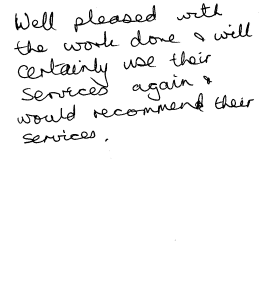 Well pleased with
the work done & will
certainly use their
services again &
would recommend their
services.